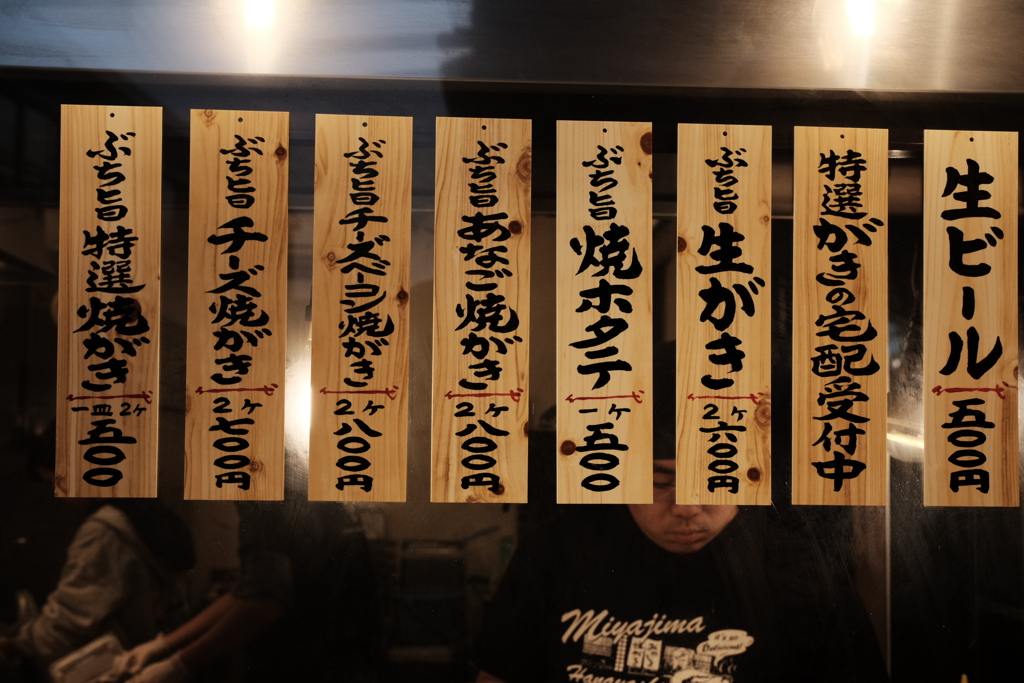 生ビール五〇〇円
特選がきの宅配受付中
ぶち旨生がき2ヶ六〇〇円
ぶち旨焼ホタテ一ヶ五〇〇
ぶち旨あなご焼がき2ヶ八〇〇円
ぶち旨チーズベーコン焼がき2ヶ八〇〇円
ぶち旨チーズ焼がき2ヶ七〇〇円
ぶち旨特選焼がき一皿2ヶ五〇〇
Miyajima